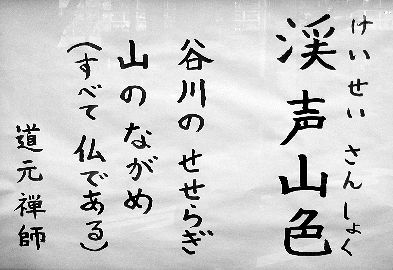 けいせい さんしょく
渓声山色
谷川のせせらぎ
山のながめ
(すべて仏である)
道元禅師